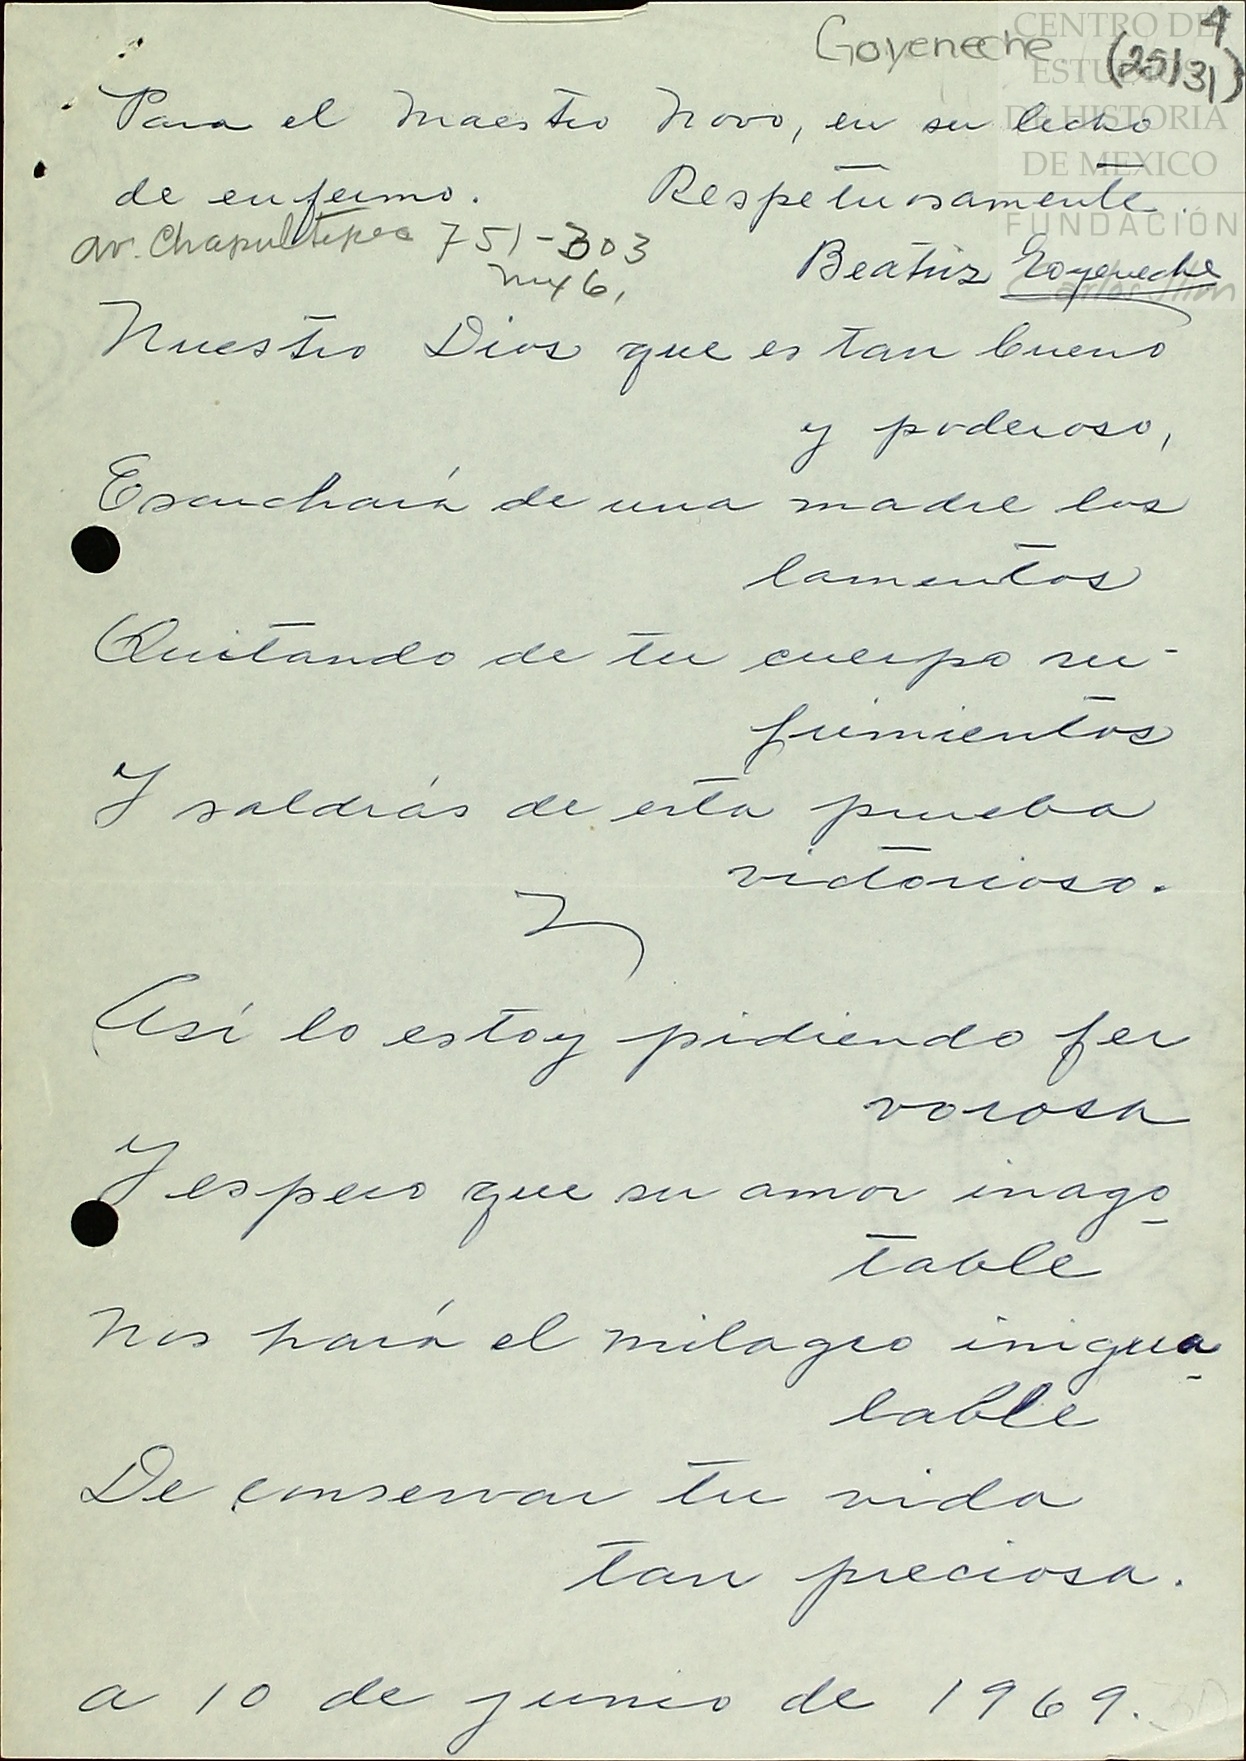 Goyeneche 4
(25/31)
CENTRO DE
ESTUDIOS
DE HISTORIA
DE MEXICO
FUNDACIÓN
Carlos Slim
Para el Maestro Novo, en su lecho
de enfermo. Respetuosamente.
av. Chapultepec 751-303
Mx 6,
Beatriz Goyeneche
Nuestro Dios que es tan bueno
y poderoso,
Escuchará de una madre los
lamentos
Quitando de tu cuerpo su-
frimientos
Y saldrás de esta prueba
victorioso.
Así lo estoy pidiendo fer
vorosa
Y espero que su amor inago
table
Nos hará el milagro inigua
lable
De conservar tu vida
tan preciosa.
a 10 de junio de 1969.